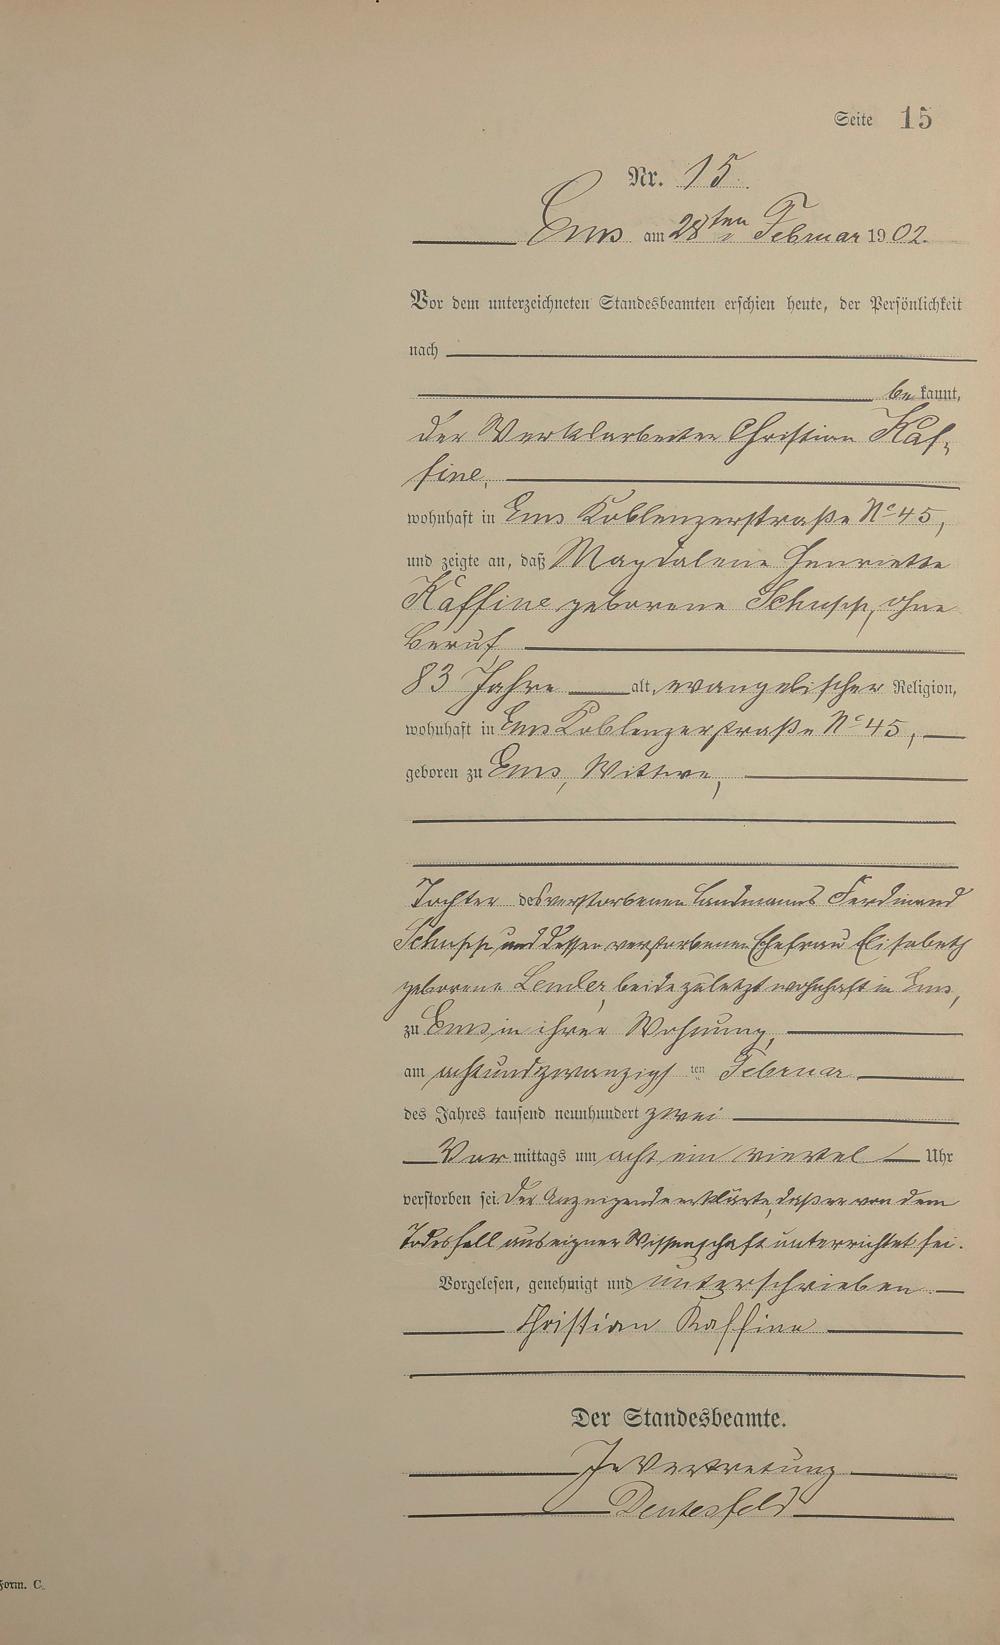 Seite 15
Nr. 15.
Ems am 28ten Februar 1902.
Vor dem unterzeichneten Standesbeamten erschien heute, der Persönlichkeit
nach
bekannt,
der Werksarbeiter Christian Kaf-
fine,
wohnhaft in Ems Koblenzerstraße No 45,
und zeigte an, daß Magdalene Henriette
Kaffine geborene Schupp, ohne
Beruf,
83 Jahre alt, evangelischer Religion,
wohnhaft in Ems Koblenzerstraße No 45,
geboren zu Ems, Wittwe,
Tochter des verstorbenen Landmanns Ferdinand
Schupp und dessen verstorbenen Ehefrau Elisabeth
geborene Lemler, beide zuletzt wohnhaft in Ems,
zu Ems in ihrer Wohnung,
am achtundzwanzigsten Februar
des Jahres tausend neunhundert zwei
Vormittags um acht ein viertel Uhr
verstorben sei. Der Anzeigende erklärte, daß er von dem
Todesfall aus eigner Wissenschaft unterrichtet sei.
Vorgelesen, genehmigt und unterschrieben.
Christian Kaffine
Der Standesbeamte.
In Vertretung
Deutesfeld
Form. C.